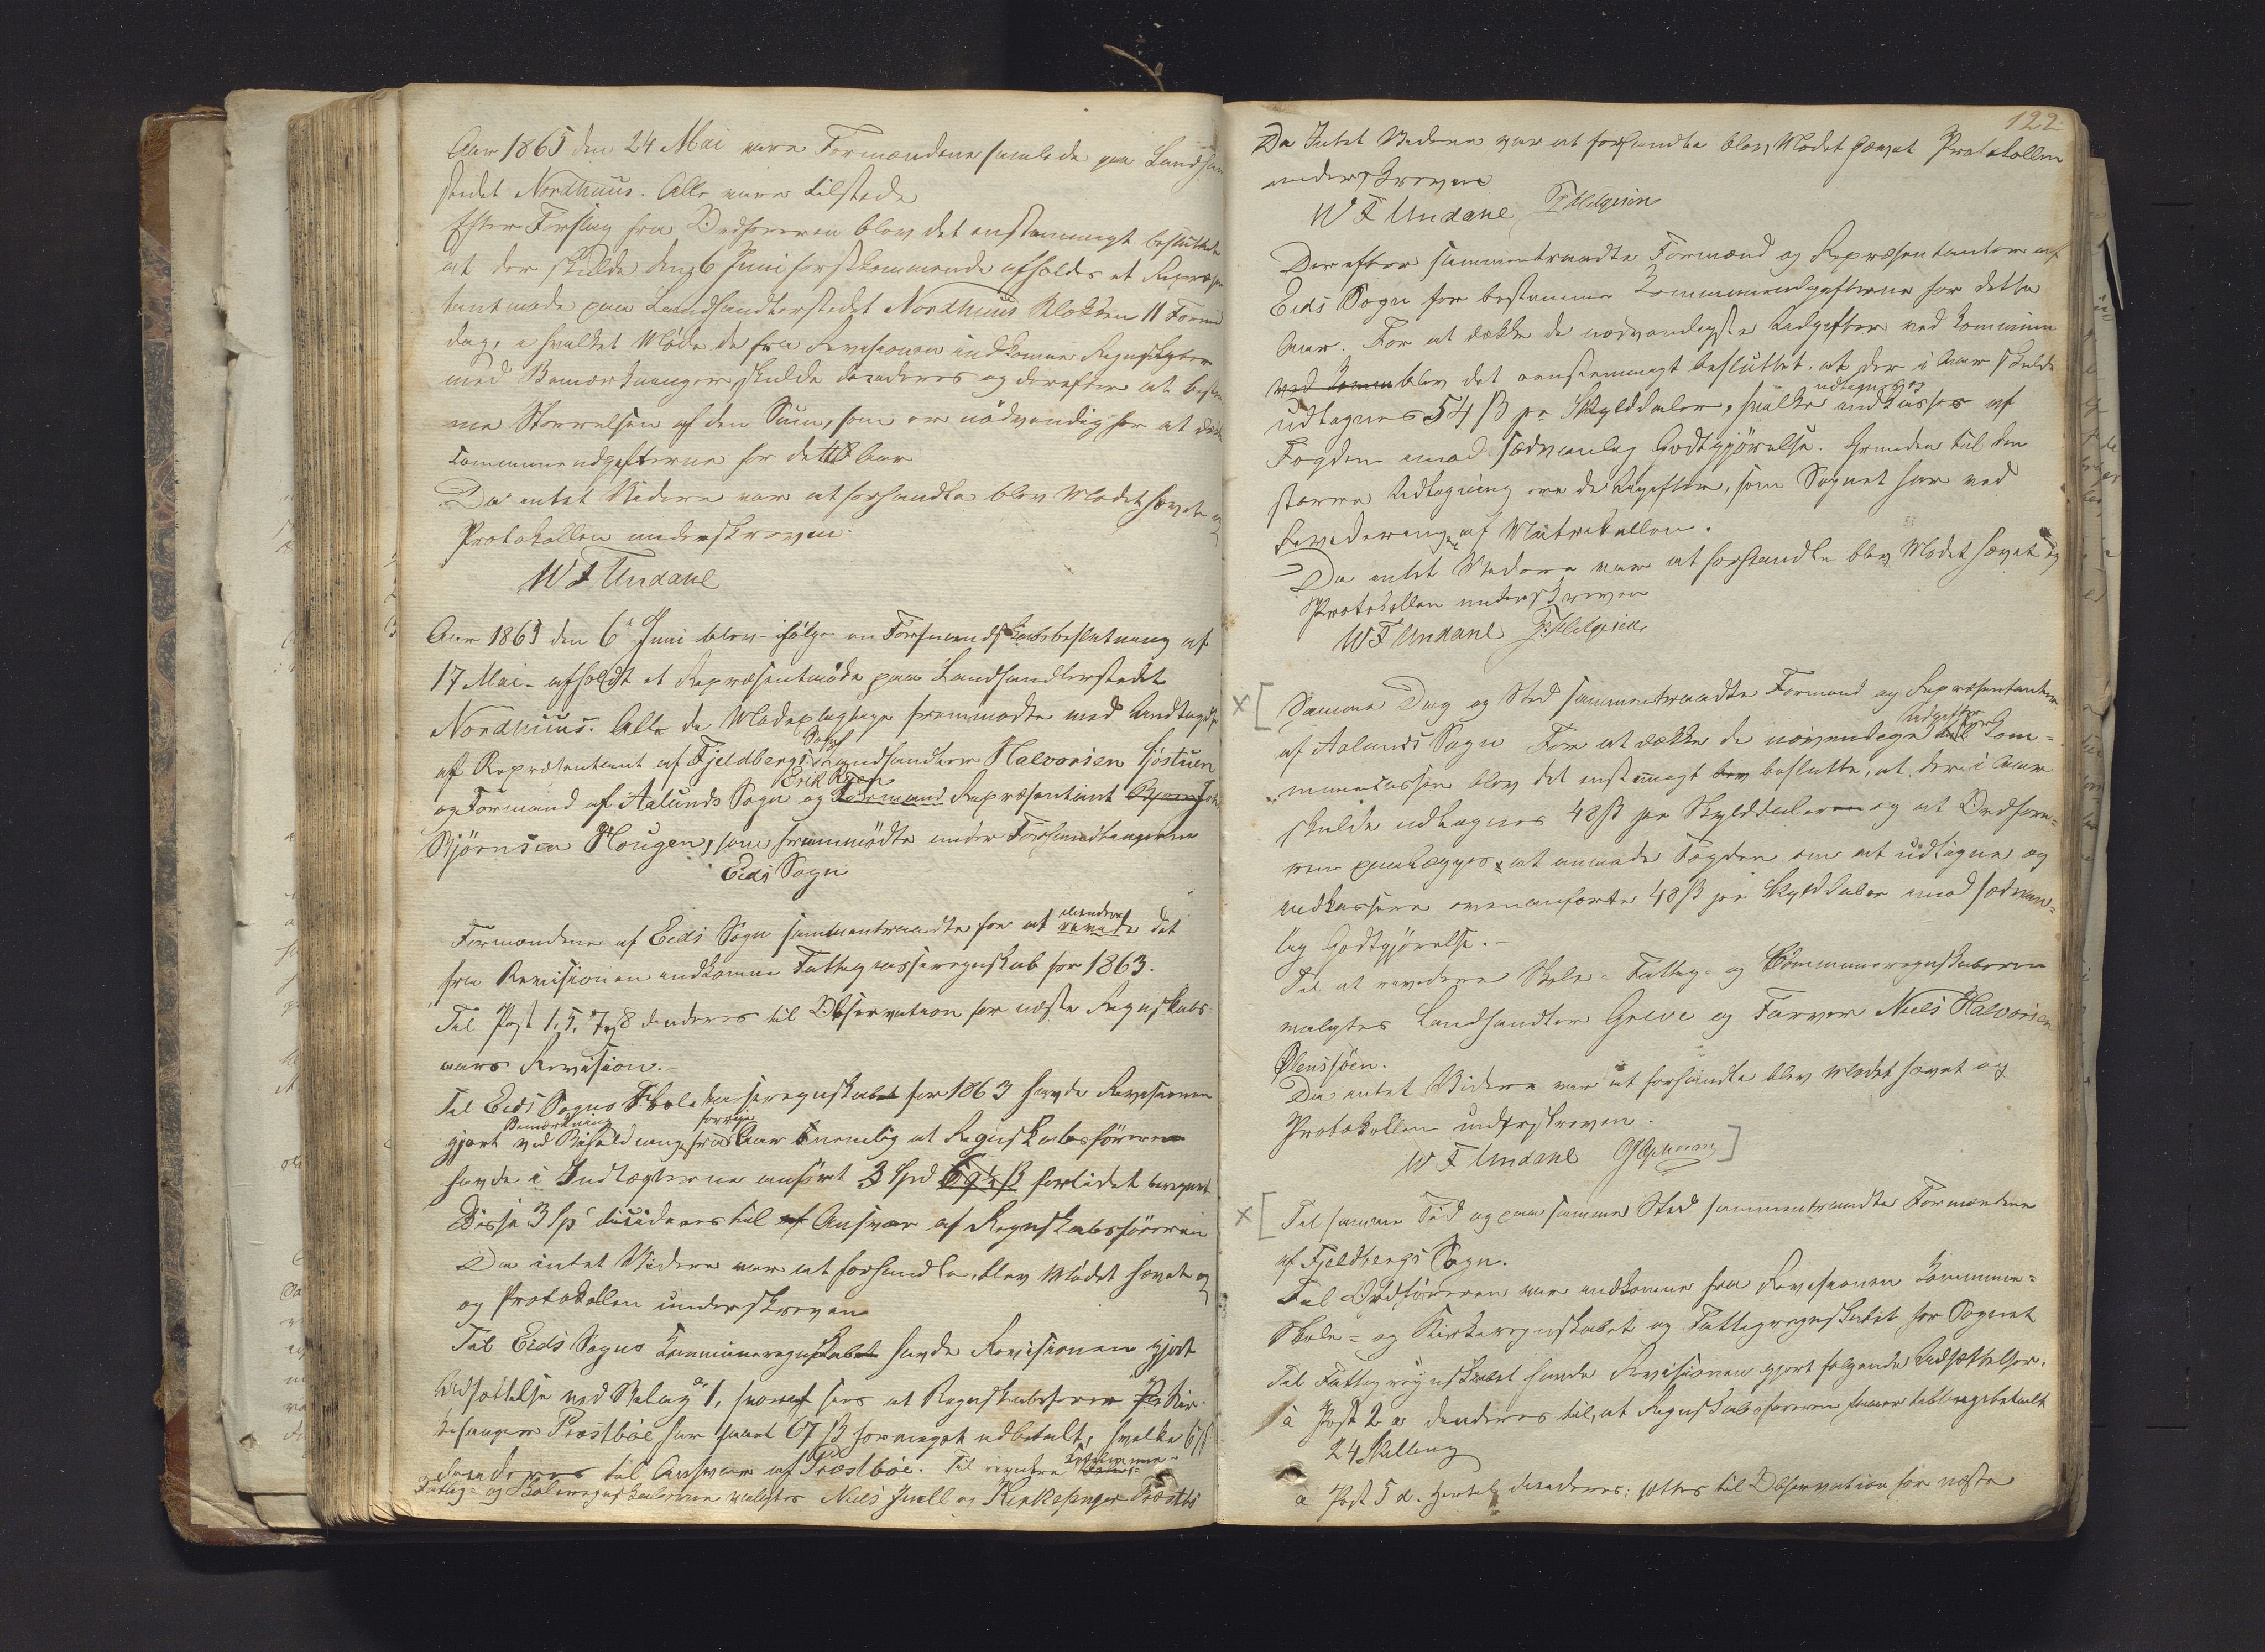 Aar 1865 den 24 Mai vare Formændene samlede paa Landhan
stedet Nordhuus. Alle vare tilstede
Efter Forslag fra Ordføreren blev det enstemmigt besluttet
at der skulde den 6 Juni førstkommende afholdes et Repræsen
tantmøde paa Landhandlerstedet Nordhuus Klokken 11 Formid
dag, i hvilket Møde de fra Revisionen indkomne Regnskaber
med Bemærkninger skulde decideres og derefter at bestem
me Størrelsen af den Sum, som er nødvendig for at dække
Communeudgifterne for dette Aar
Da intet Videre var at forhandle blev Mødet hævet og
Protokollen underskreven.
W T Undahl
Aar 1865 den 6 Juni blev ifølge en Formandskabsbeslutning af
17 Mai afholdt et Repræsentmøde paa Landhandlerstedet
Nordhuus. Alle de Mødepligtige fremmødte med Undtagelse
af Repræsentant af Fjeldbergs Sogn Landhandler Halvorsen Sjøstuen
og Formand af Aalunds Sogn Erik og Formand Repræsentant
Bjørnsen Hougen, som fremmødte under Forhandlingerne
Eids Sogn
Formændene af Eids Sogn sammentraadte for at decidere revede det
fra Revisionen indkomne Fattigcasseregnskab for 1863.
Til Post 1, 5, 7 og 8 decideres til Observation for næste Regnskabs
aars Revision.
Til Eids Sogns Skolecasseregnskabet for 1863 havde Revisionen
gjort Bemærkning ved Beholdning fra forrige Aar nemlig at Regnskabsføreren
havde i Indtægterne anført 3 Spd forlidet beregnet
Disse 3 Sp decideres til af Ansvar af Regnskabsføreren
Da intet Videre var at forhandle, blev Mødet hævet og
og Protokollen underskreven
Til Eids Sogns Communeregnskabet havde Revisionen gjort
Udsættelse ved Bilag 1, hvoraf sees at Regnskabsfører Kir-
kesanger Præstbøe har faaet 67 ß formeget udbetalt, hvilke 67 ß
decideres til Ansvar af Præstbøe. Til revidere Commune-
Fattig- og Skoleregnskaberne valgtes Niels Juell og Kirkesanger Præstbø
122.
Da Intet Videre var at forhandle blev Mødet hævet Protokollen
underskreven
W T Undahl T Helgesen
Derefter sammentraadte Formænd og Repræsentanter af
Eids Sogn for bestemme Kommuneudgifterne for dette
Aar. For at dække de nødvendigste Udgifter ved Kommune
ved Komm blev det eenstemmigt besluttet at der i Aar skulde
udlignes 54 ß pr Skylddaler, hvilke udlignes og indkasses af
Fogden imod sædvanlig Godtgjørelse. Grunden til den
større Udligning ere de Udgifter, som Sognet har ved
Revidering af Matrikullen.
Da intet Videre var at forhandle blev Mødet hævet og
Protokollen underskreven
W T Undahl T Helgesen
Samme Dag og Sted sammentraadte Formænd og Repræsentanter
af Aalunds Sogn For at dække de nøivendige Udgifter Kom-
munekassen blev det enstemmigt blev beslutte, at der i Aar
skulde udlignes 48 ß pr Skylddaler og at Ordføre-
ren paalægges at anmode Fogden om at udligne og
indkassere ovenanførte 48 ß pr Skylddaler imod sædvan-
lig Godtgjørelse.-
Til at revidere Skole- Fattig- og Communeregnskaberne
valgtes Landhandler Greve og Farver Niels Halvorsen
Ølenssjøen.
Da intet Videre var at forhandle blev Mødet hævet og
Protokollen underskreven.
W T Undahl
Til samme Tid og paa samme Sted sammentraadte Formændene
af Fjeldbergs Sogn.
Til Ordføreren var indkomne fra Revisionen Kommune-
Skole- og Kirkeregnskabet og Fattigregnskabet for Sognet
Til Fattigregnskabet havde Revisionen gjort følgende Udsættelser.
à Post 2 a decideres til, at Regnskabsføreren faaer tilbagebetalt
24 Skilling
à Post 5 d. decideres: sættes til Observation for næste